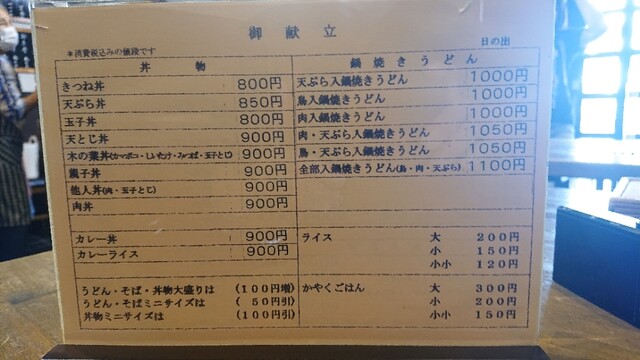 御献立
日の出
＊消費税込みの値段です
丼物
きつね丼 800円
天ぷら丼 850円
玉子丼 800円
天とじ丼 900円
木の葉丼(カマボコ・しいたけ・みつば・玉子とじ) 900円
親子丼 900円
他人丼(肉・玉子とじ) 900円
肉丼 900円
カレー丼 900円
カレーライス 900円
うどん・そば・丼物大盛りは (100円増)
うどん・そばミニサイズは (50円引)
丼物ミニサイズは (100円引)
鍋焼きうどん
天ぷら入鍋焼きうどん 1000円
鳥入鍋焼きうどん 1000円
肉入鍋焼きうどん 1000円
肉・天ぷら入鍋焼きうどん 1050円
鳥・天ぷら入鍋焼きうどん 1050円
全部入鍋焼きうどん(鳥・肉・天ぷら) 1100円
ライス 大 200円
小 150円
小小 120円
かやくごはん 大 300円
小 200円
小小 150円